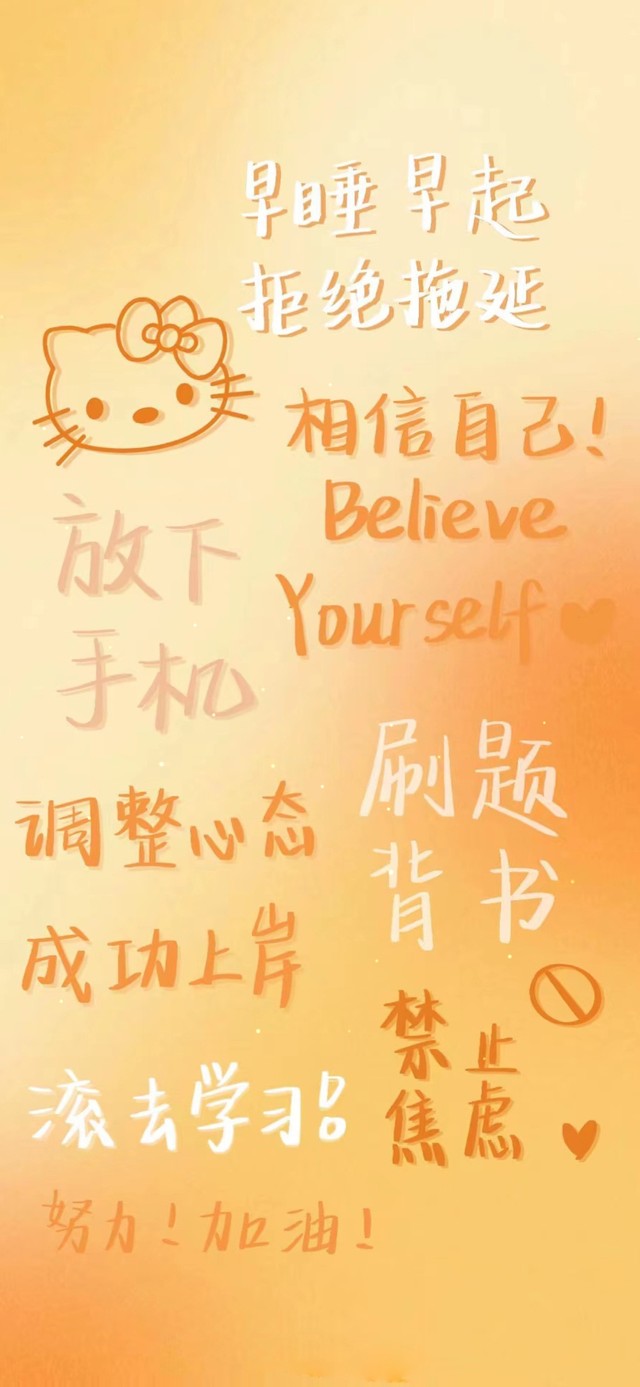 早睡早起
拒绝拖延
相信自己!
Believe
Yourself
放下
手机
刷题
背书
调整心态
成功上岸
禁止
焦虑
滚去学习!
努力!加油!